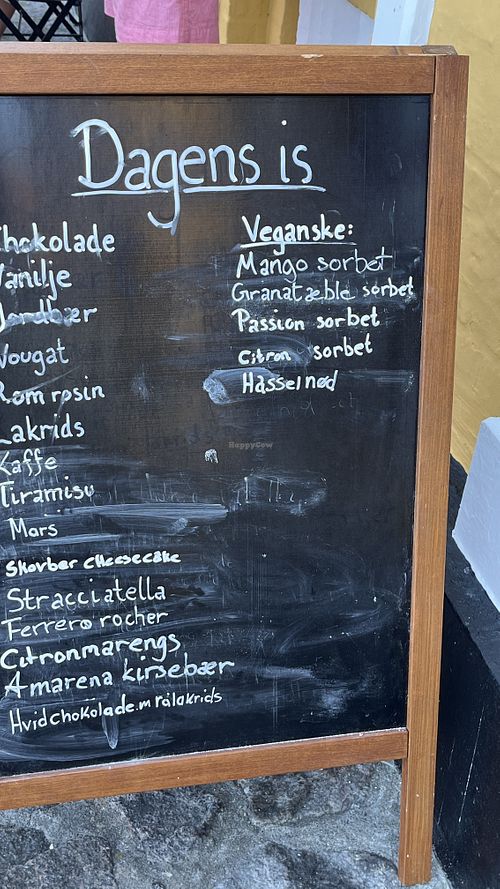 Dagens is
Chokolade
Vanilje
Jordbær
Nougat
Rom rosin
Lakrids
Kaffe
Tiramisu
Mars
Skovbær cheesecake
Stracciatella
Ferrero rocher
Citronmarengs
Amarena kirsebær
Hvid chokolade.m rålakrids
Veganske:
Mango sorbet
Granatæble sorbet
Passion sorbet
Citron sorbet
Hasselnød
HappyCow